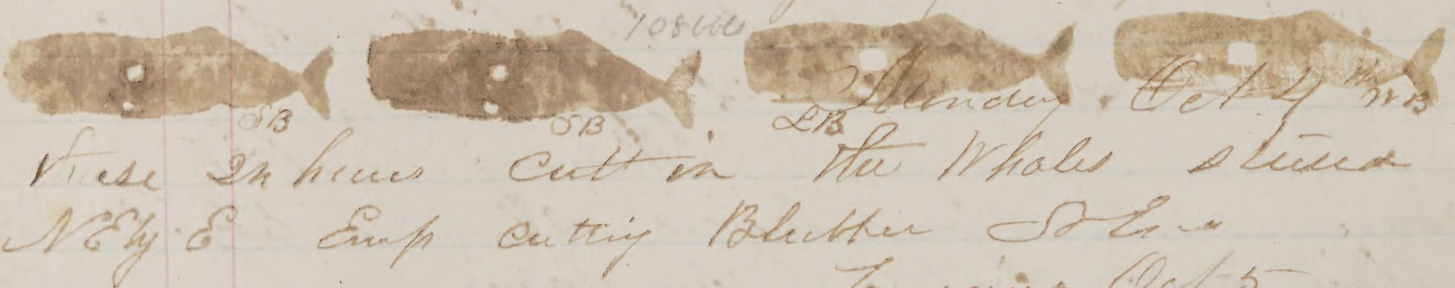 SB SB LB WB
Monday Oct 4th
these 24 hours cutt in the Whales steered
NE by E Emp cutting Blubber So Ends
Oct 5